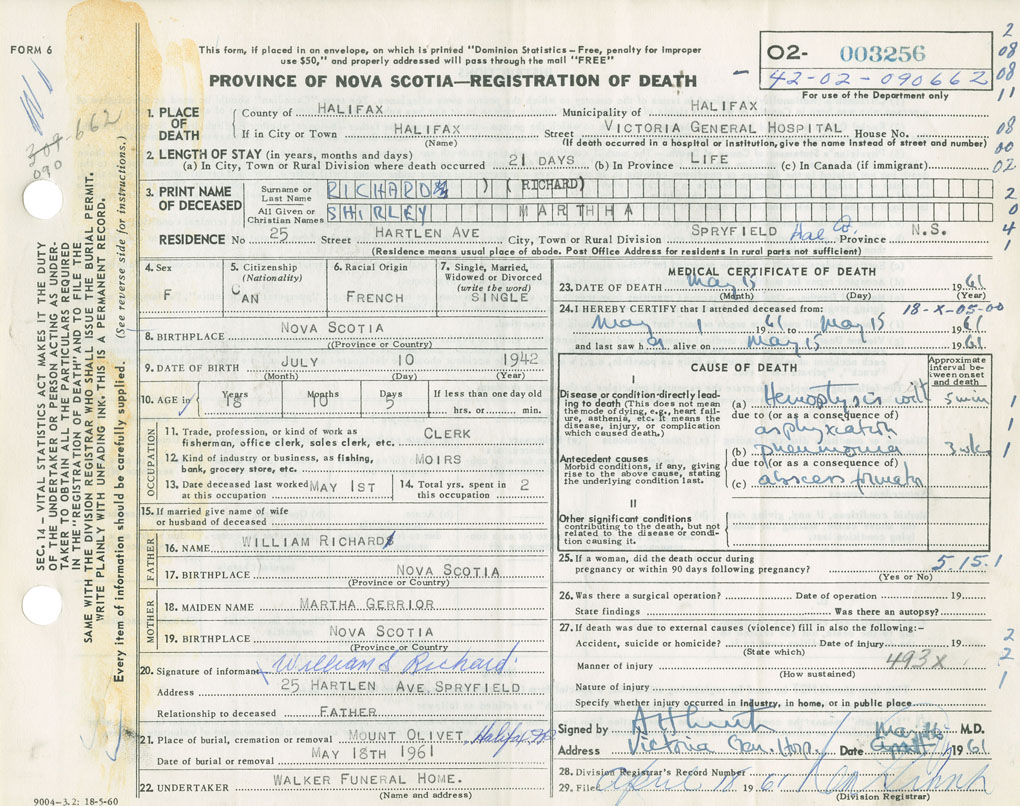 FORM 6
This form, if placed in an envelope, on which is printed "Dominion Statistics – Free, penalty for improper
use $50," and properly addressed will pass through the mail "FREE"
PROVINCE OF NOVA SCOTIA—REGISTRATION OF DEATH
02- 003256
42-02-090662
For use of the Department only
2
08
08
11
08
00
02
2
0
4
1
309-662
090
SEC. 14 – VITAL STATISTICS ACT MAKES IT THE DUTY
OF THE UNDERTAKER OR PERSON ACTING AS UNDER-
TAKER TO OBTAIN ALL THE PARTICULARS REQUIRED
IN THE "REGISTRATION OF DEATH" AND TO FILE THE
SAME WITH THE DIVISION REGISTRAR WHO SHALL ISSUE THE BURIAL PERMIT.
WRITE PLAINLY WITH UNFADING INK. THIS IS A PERMANENT RECORD.
Every item of information should be carefully supplied. (See reverse side for instructions.)
1. PLACE OF DEATH
County of HALIFAX Municipality of HALIFAX
If in City or Town HALIFAX Street VICTORIA GENERAL HOSPITAL House No.
(Name) (If death occurred in a hospital or institution, give the name instead of street and number)
2. LENGTH OF STAY (in years, months and days)
(a) In City, Town or Rural Division where death occurred 21 DAYS (b) In Province LIFE (c) In Canada (if immigrant)
3. PRINT NAME OF DECEASED
Surname or Last Name RICHARDS ) ( RICHARD)
All Given or Christian Names SHIRLEY MARTHA
RESIDENCE No 25 Street HARTLEN AVE City, Town or Rural Division SPRYFIELD Hal Co. Province N.S.
(Residence means usual place of abode. Post Office Address for residents in rural parts not sufficient)
4. Sex F
5. Citizenship (Nationality) CAN
6. Racial Origin FRENCH
7. Single, Married, Widowed or Divorced (write the word) SINGLE
8. BIRTHPLACE NOVA SCOTIA
((Province or Country)
9. DATE OF BIRTH JULY 10 1942
(Month) (Day) (Year)
10. AGE in Years 18 Months 10 Days 5 If less than one day old
hrs. or min.
OCCUPATION
11. Trade, profession, or kind of work as
fisherman, office clerk, sales clerk, etc. CLERK
12. Kind of industry or business, as fishing,
bank, grocery store, etc. MOIRS
13. Date deceased last worked at this occupation MAY 1ST
14. Total yrs. spent in this occupation 2
15. If married give name of wife
or husband of deceased
FATHER
16. NAME WILLIAM RICHARDS
17. BIRTHPLACE NOVA SCOTIA
(Province or Country)
MOTHER
18. MAIDEN NAME MARTHA GERRIOR
19. BIRTHPLACE NOVA SCOTIA
(Province or Country)
20. Signature of informant William S Richard
Address 25 HARTLEN AVE SPRYFIELD
Relationship to deceased FATHER
21. Place of burial, cremation or removal MOUNT OLIVET Halifax
Date of burial or removal MAY 18TH 1961
22. UNDERTAKER WALKER FUNERAL HOME.
(Name and address)
9004-3.2: 18-5-60
MEDICAL CERTIFICATE OF DEATH
23. DATE OF DEATH May 15 1961
(Month) (Day) (Year)
24. I HEREBY CERTIFY that I attended deceased from: 18-X-05-00
May 1 1961 to May 15 1961
and last saw her alive on May 15 1961
CAUSE OF DEATH
Approximate interval between onset and death
I
Disease or condition directly leading to death (This does not mean
the mode of dying, e.g., heart failure, asthenia, etc. It means the
disease, injury, or complication which caused death.)
(a) Hemoptysis with 5 min 1
due to (or as a consequence of)
asphyxiation 1
Antecedent causes
Morbid conditions, if any, giving
rise to the above cause, stating
the underlying condition last.
(b) pneumonia 3 wks 1
due to (or as a consequence of)
(c) abscess formation
II
Other significant conditions
contributing to the death, but not
related to the disease or condition causing it.
25. If a woman, did the death occur during
pregnancy or within 90 days following pregnancy? 5.15.1
(Yes or No)
26. Was there a surgical operation? Date of operation 19
State findings Was there an autopsy?
27. If death was due to external causes (violence) fill in also the following:–
Accident, suicide or homicide? Date of injury 19 2
(State which) 2
Manner of injury 493X 1
(How sustained)
Nature of injury
Specify whether injury occurred in industry, in home, or in public place
Signed by M.D.
Address Victoria Gen. Hosp. Date May 1961
28. Division Registrar's Record Number
29. Filed April 61
(Division Registrar)